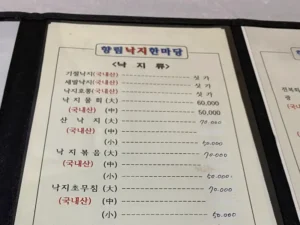 향림낙지한마당
<낙 지 류>
기절낙지(국내산) 싯 가
세발낙지(국내산) 싯 가
낙지호롱(국내산) 싯 가
낙 지 물 회 (大) 60,000
(국내산) (中) 50,000
산 낙 지 (大) 70.000
(국내산) (中)
(小) 50.000
낙 지 볶 음 (大) 70.000
(국내산) (中)
(小) 50.000
낙지초무침 (大) 70.000
(국내산) (中)
(小) 50.000